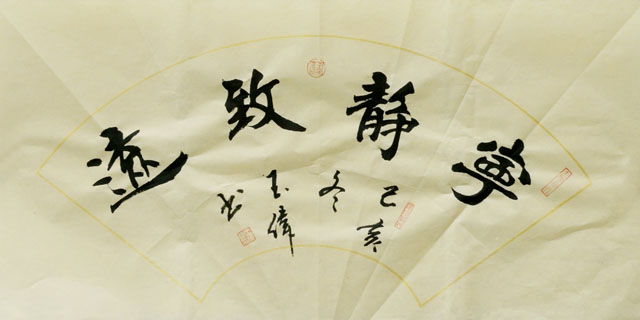 寧静致遠
己亥
冬
玉偉
书